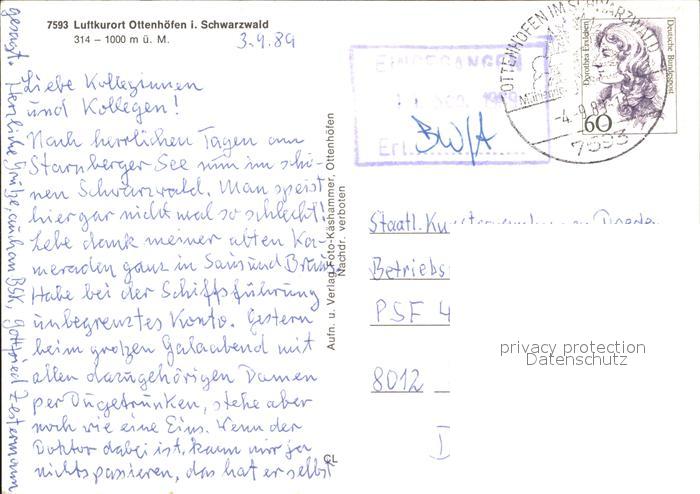 7593 Luftkurort Ottenhöfen i. Schwarzwald
314 – 1000 m ü. M.
3.9.89
Liebe Kolleginnen
und Kollegen!
Nach herrlichen Tagen am
Starnberger See nun im schö-
nen Schwarzwald. Man speist
hier gar nicht mal so schlecht!
Lebe dank meiner alten Ka-
meraden ganz in Saus und Braus.
Habe bei der Schiffsführung
unbegrenztes Konto. Gestern
beim großen Galaabend mit
allen dazugehörigen Damen
per Du getrunken, stehe aber
noch wie eine Eins. Wenn der
Doktor dabei ist, kann mir ja
nichts passieren, das hat er selbst
gesagt. Herzliche Grüße, auch an BGK, Gottfried
Aufn. u. Verlag Foto-Käshammer, Ottenhöfen
Nachdr. verboten
CL
EINGEGANGEN
1989
Erl.
BW/A
OTTENHÖFEN IM SCHWARZWALD
-4.-9.89
7593
Dorothea Erxleben
Deutsche Bundespost
60
Staatl.
Betriebs
PSF 4
8012
privacy protection
Datenschutz